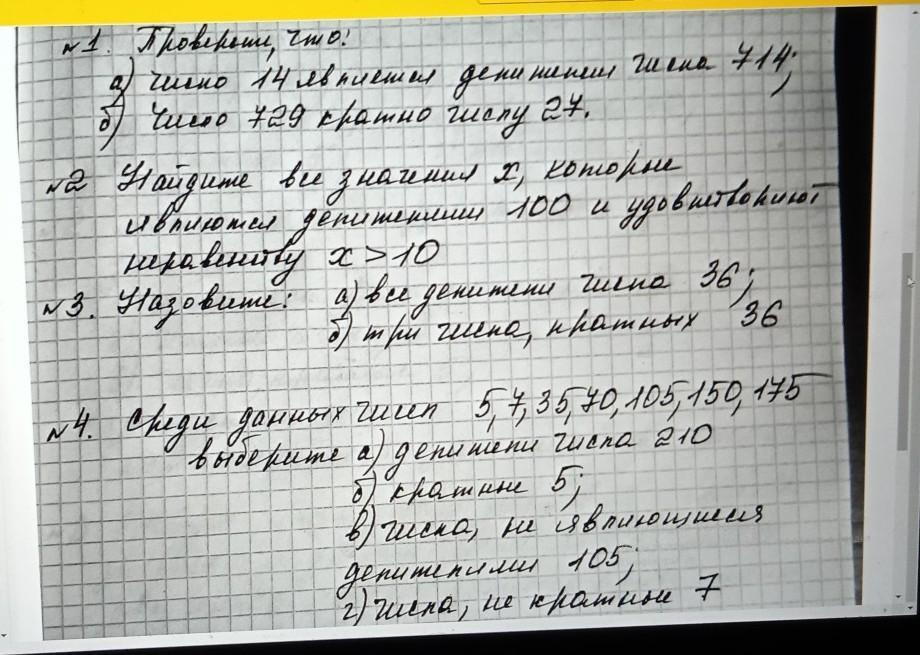 №1. Проверьте, что:
а) число 14 является делителем числа 714;
б) Число 729 кратно числу 27.
№2 Найдите все значения x, которые
являются делителями 100 и удовлетворяют
неравенству x > 10
№3. Назовите: а) все делители числа 36;
б) три числа, кратных 36
№4. Среди данных чисел 5, 7, 35, 70, 105, 150, 175
выберите а) делители числа 210
б) кратные 5;
в) числа, не являющиеся
делителями 105;
г) числа, не кратные 7